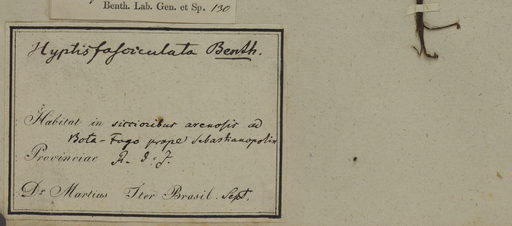 Benth. Lab. Gen. et Sp. 130
Hyptis fasciculata Benth.
Habitat in siccioribus arenosis ad
Bota-Fogo prope Sebastianopolin
Provinciae R. I. J.
Dr. Martius Iter Brasil. Sept.